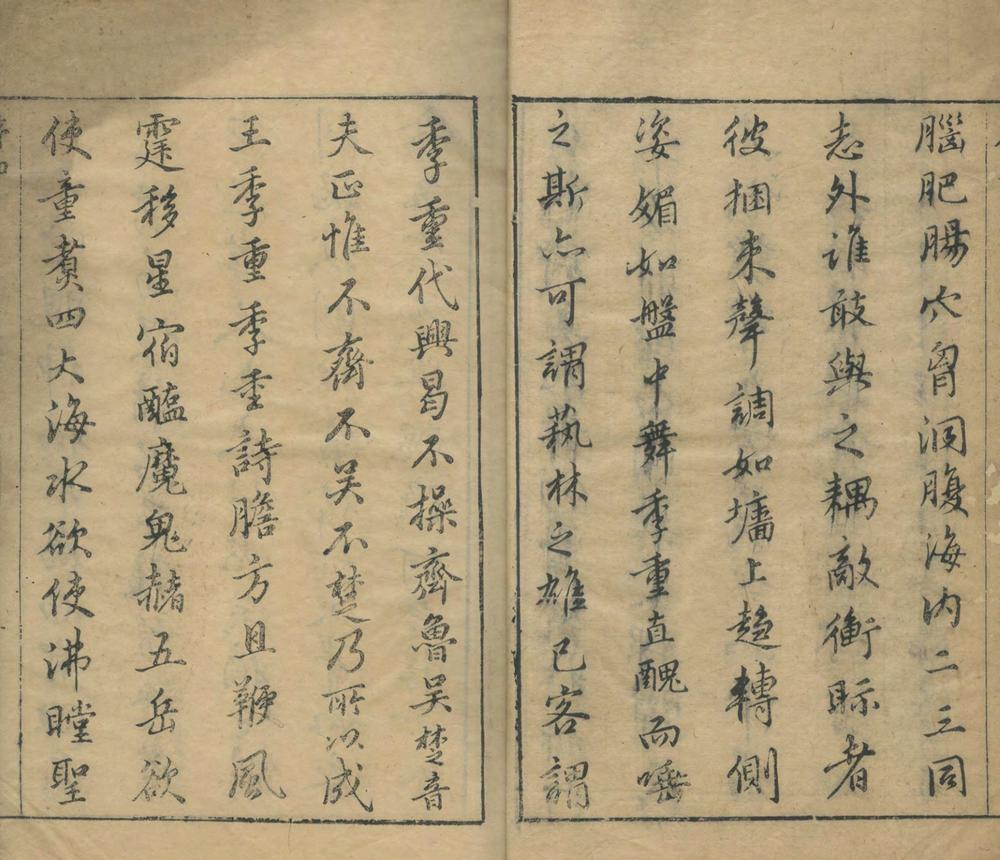 腦肥腸穴胷洞腹海內二三同
志外誰敢與之耦敵衡眎者
彼捆束聲調如墻上趨轉側
姿媚如盤中舞季重直醜而唾
之斯亦可謂蓺林之雄已客謂
季重代興曷不操齊魯吳楚音
夫正惟不齊不吳不楚乃所以成
王季重季重詩膽方且鞭風
霆移星宿醢魔鬼赭五岳欲
使童煑四大海水欲使沸瞠聖